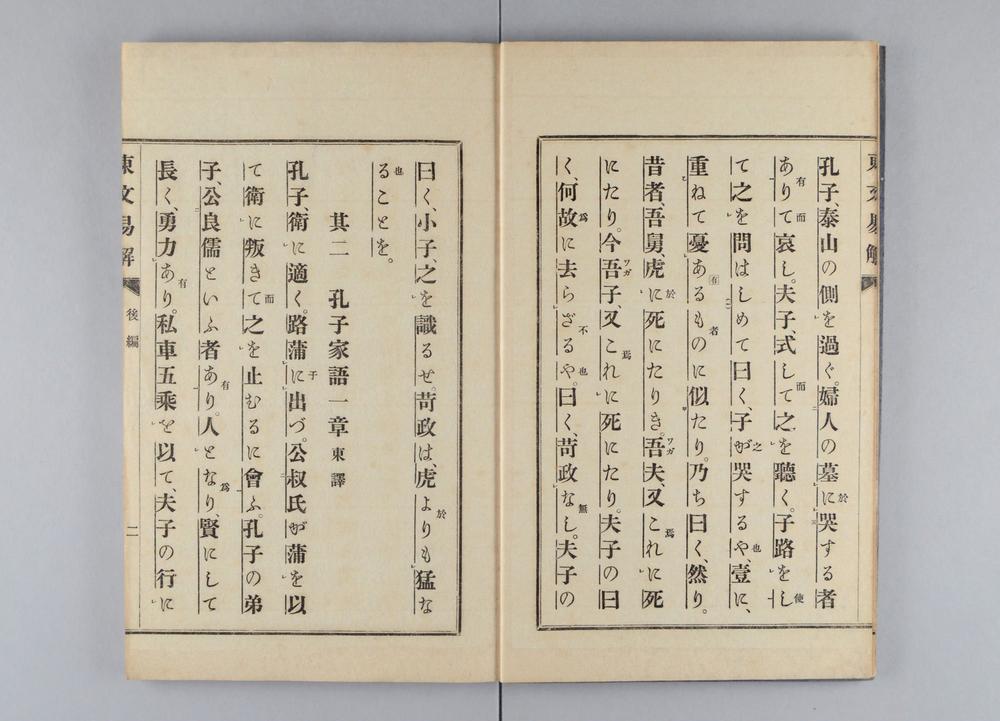 孔子、泰山の側を過ぐ。婦人の墓に哭する者
ありて哀し。夫子、式して之を聽く。子路をし
て之を問はしめて曰く、子が哭するや、壹に、
重ねて憂あるものに似たり。乃ち曰く、然り。
昔者、吾舅、虎に死にたりき。吾夫、又これに死
にたり。今吾子、又これに死にたり。夫子の曰
く、何故に去らざるや。曰く、苛政なし。夫子の
曰く、小子、之を識るせ。苛政は、虎よりも猛な
ることを。
其二 孔子家語一章 東譯
孔子、衛に適く。路蒲に出づ。公叔氏が蒲を以
て衛に叛きて之を止むるに會ふ。孔子の弟
子、公良儒といふ者あり。人となり、賢にして
長く、勇力あり。私車五乘を以て、夫子の行に
東文易解 後編 二